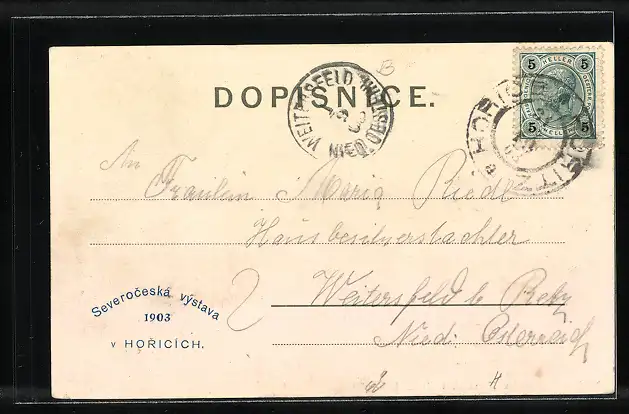 DOPISNICE.
WEITERSFELD NIED. ÖSTERR.
B
5 HELLER 5
5 HELLER 5
HOŘICE HOŘITZ
An
Fräulein Maria Riedl
Hausbesitzerstochter
2 Weitersfeld b Retz
Nied. Österreich
Severočeská výstava
1903
v HOŘICÍCH.
H